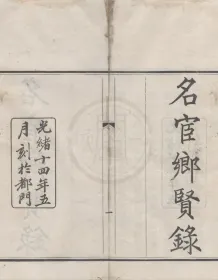 名宦鄉賢錄
光緒十四年五
月刻於都門